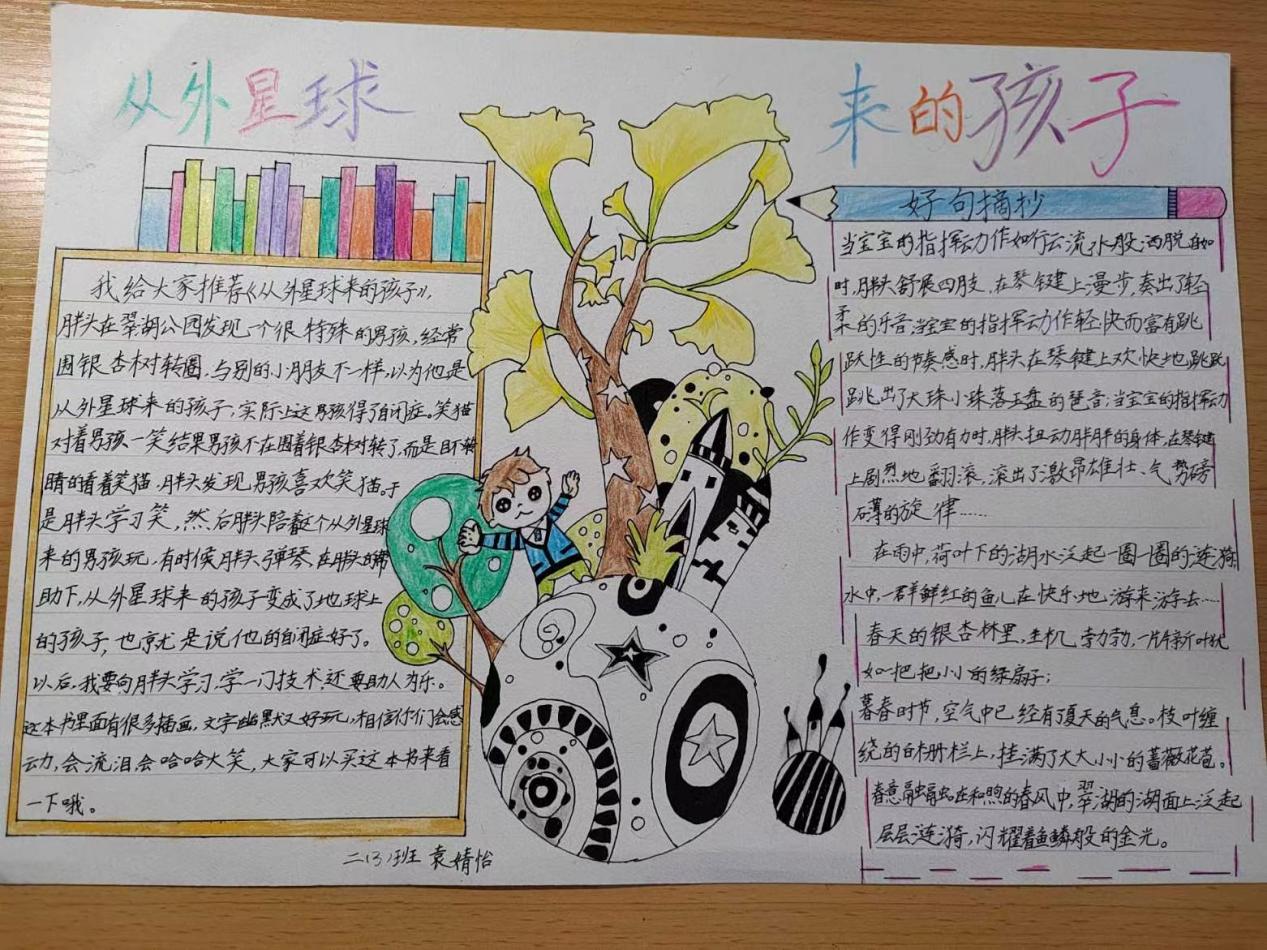 从外星球
来的孩子
我给大家推荐《从外星球来的孩子》,
胖头在翠湖公园发现一个很特殊的男孩,经常
围银杏树转圈.与别的小朋友不一样,以为他是
从外星球来的孩子,实际上这男孩得了自闭症。笑猫
对着男孩一笑结果男孩不在围着银杏树转了,而是目不转
睛的看着笑猫.胖头发现男孩喜欢笑猫。于
是胖头学习笑,然后胖头陪着这个从外星球
来的男孩玩,有时候胖头弹琴,在胖头的帮
助下,从外星球来的孩子变成了地球上
的孩子,也就是说他的自闭症好了。
以后,我要向胖头学习,学一门技术,还要助人为乐。
这本书里面有很多插画,文字幽默又好玩,相信你们会感
动,会流泪,会哈哈大笑,大家可以买这本书来看
一下哦。
二(3)班 袁婧怡
好句摘抄
当宝宝的指挥动作如行云流水般洒脱自如
时,胖头舒展四肢,在琴键上漫步,奏出了轻
柔的乐音;当宝宝的指挥动作轻快而富有跳
跃性的节奏感时,胖头在琴键上欢快地跳跃
跳出了大珠小珠落玉盘的琶音;当宝宝的指挥动
作变得刚劲有力时,胖头扭动胖胖的身体,在琴键
上剧烈地翻滚,滚出了激昂雄壮、气势磅
礴的旋律……
在雨中,荷叶下的湖水泛起一圈一圈的涟漪,
水中,一群鲜红的鱼儿在快乐地游来游去……
春天的银杏林里,生机勃勃,一片片新叶犹
如一把把小小的绿扇子;
暮春时节,空气中已经有了夏天的气息。枝叶缠
绕的白栅栏上,挂满了大大小小的蔷薇花苞。
春意融融,在和煦的春风中,翠湖的湖面上泛起
层层涟漪,闪耀着鱼鳞般的金光。